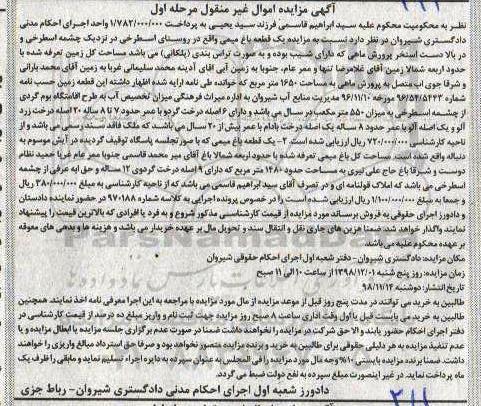 آگهی مزایده اموال غیر منقول مرحله اول
نظر به محکومیت محکوم علیه سید ابراهیم قاسمی فرزند سید یحیی به پرداخت ۱/۷۸۲/۰۰۰/۰۰۰ واحد اجرای احکام مدنی
دادگستری شیروان در نظر دارد نسبت به مزایده یک قطعه باغ میمی واقع در روستای اسطرخی در نزدیک چشمه اسطرخی و
در بالا دست استخر پرورش ماهی که دارای شیب بوده و به صورت تراس بندی (پلکانی) می باشد مساحت کل زمین تعرفه شده با
حدود اربعه شمالا زمین آقای غلامرضا تنها و ممر عام، جنوبا به زمین آبی آقای آدینه محمد سلیمانی غربا به زمین آقای محمد بارانی
و شرقا جوی آب متصل به پرورش ماهی به مساحت ۱۶۵۰ متر مربع که خوانده طی نامه ارایه شده اظهار داشته این قطعه زمین حسب نامه
شماره ۹۶/۵۴/۵۴۴۳ مورخه ۹۶/۱۱/۱۰ مدیریت منابع آب شیروان به اداره میراث فرهنگی میزان تخصیص آب به طرح اقامتگاه بوم گردی
از چشمه اسطرخی به میزان ۵۵۰ متر مکعب در سال می باشد و دارای ۶ اصله درخت گردو با عمر حدود ۷ تا ۸ ساله ۲۰ اصله درخت زرد
آلو و یک اصله آلو با عمر حدود ۸ ساله یک اصله درخت بادام با عمر بیش از ۲۰ سال می باشند که ملک فاقد سند رسمی می باشد و از
ناحیه کارشناسی ۷۲۰/۰۰۰/۰۰۰ ریال ارزیابی شده است. ۲- یک قطعه باغ میمی که با صورتجلسه پاسگاه توقیف گردیده در آیش موسوم به
دنباله واقع شده است. مساحت کل باغ میمی تعرفه شده با حدود اربعه شمالا باغ آقای میر محمد قاسمی جنوبا ممر عام غربا حمید نظام
دوست و شرقا باغ حاج علی نیری به مساحت حدود ۱۲۸۰ متر مربع که دارای ۹ اصله درخت گردوی ۱۲ ساله و حق ابه عرفی از چشمه
اسطرخی می باشد که املاک قولنامه ای و در تصرف آقای سید ابراهیم قاسمی می باشد که از ناحیه کارشناسی به مبلغ ۳۸۰/۰۰۰/۰۰۰ ریال
و جمعا به مبلغ ۱/۱۰۰/۰۰۰/۰۰۰ ریال ارزیابی شده است را در خصوص پرونده اجرایی به کلاسه شماره ۹۷۰۱۸۸ در حضور نماینده دادستان
و دادورز اجرای حقوقی به فروش برساند مورد مزایده از قیمت کارشناسی مذکور شروع و به فرد یا افرادی که بالاترین قیمت را پیشنهاد
نمایند واگذار خواهد شد. ضمنا هزین های جاری نقل و انتقال سند و تحویل مال بر عهده خریدار می باشد و هزینه ها و بدهی های معوقه
بر عهده محکوم علیه می باشد.
مکان مزایده: دادگستری شیروان- دفتر شعبه اول اجرای احکام حقوقی شیروان
زمان مزایده: روز پنج شنبه ۱۳۹۸/۱۲/۰۱ از ساعت ۱۰ الی ۱۱ صبح
تاریخ انتشار: دوشنبه ۹۸/۱۱/۱۴
طالبین به خرید می توانند در مدت پنج روز قبل از موعد مزایده از مال مورد مزایده با مراجعه به این اجرا معرفی نامه اخذ نمایند. همچنین
طالبین به خرید می بایست قبل یا اول وقت اداری ساعت ۸ صبح روز مزایده جهت ثبت نام و واریز مبلغ ده درصد از قیمت کارشناسی در
دفتر اجرای احکام حضور یابند والا حق شرکت در مزایده را نخواهند داشت ضمنا در صورت عدم برگزاری جلسه مزایده یا ابطال مزایده و یا
عدم تنفیذ مزایده به هر دلیلی حقوقی برای طالبین به خرید و برنده مزایده متصور نخواهد بود و صرفا حق استرداد مبالغ واریزی را خواهند
داشت. ضمنا برنده مزایده بایستی ۱۰% وجه مال مورد مزایده را فی المجلس به عنوان سپرده به دایره اجراء تسلیم نماید و مابقی را ظرف یک
ماه پرداخت نماید. در غیر اینصورت مبلغ سپرده به نفع دولت ضبط می گردد.
دادورز شعبه اول اجرای احکام مدنی دادگستری شیروان- رباط جزی